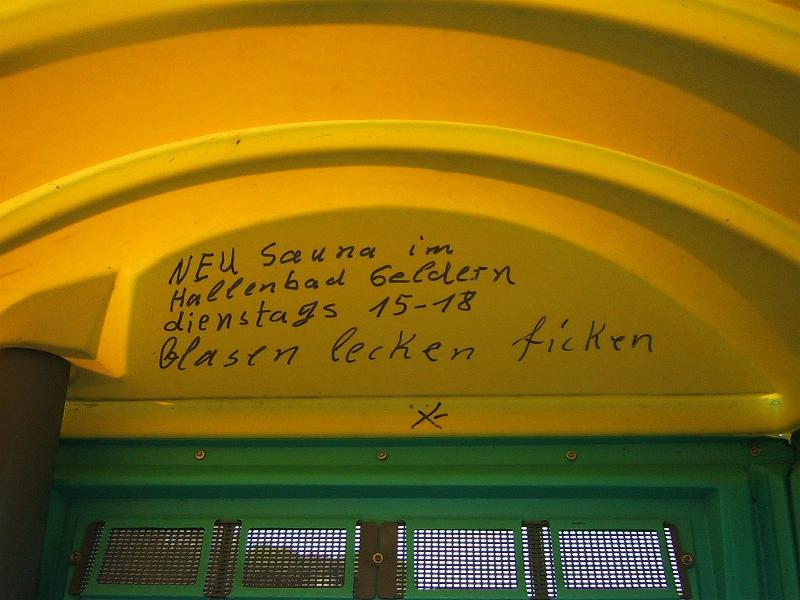 NEU Sauna im
Hallenbad Geldern
dienstags 15-18
Blasen lecken ficken
X-